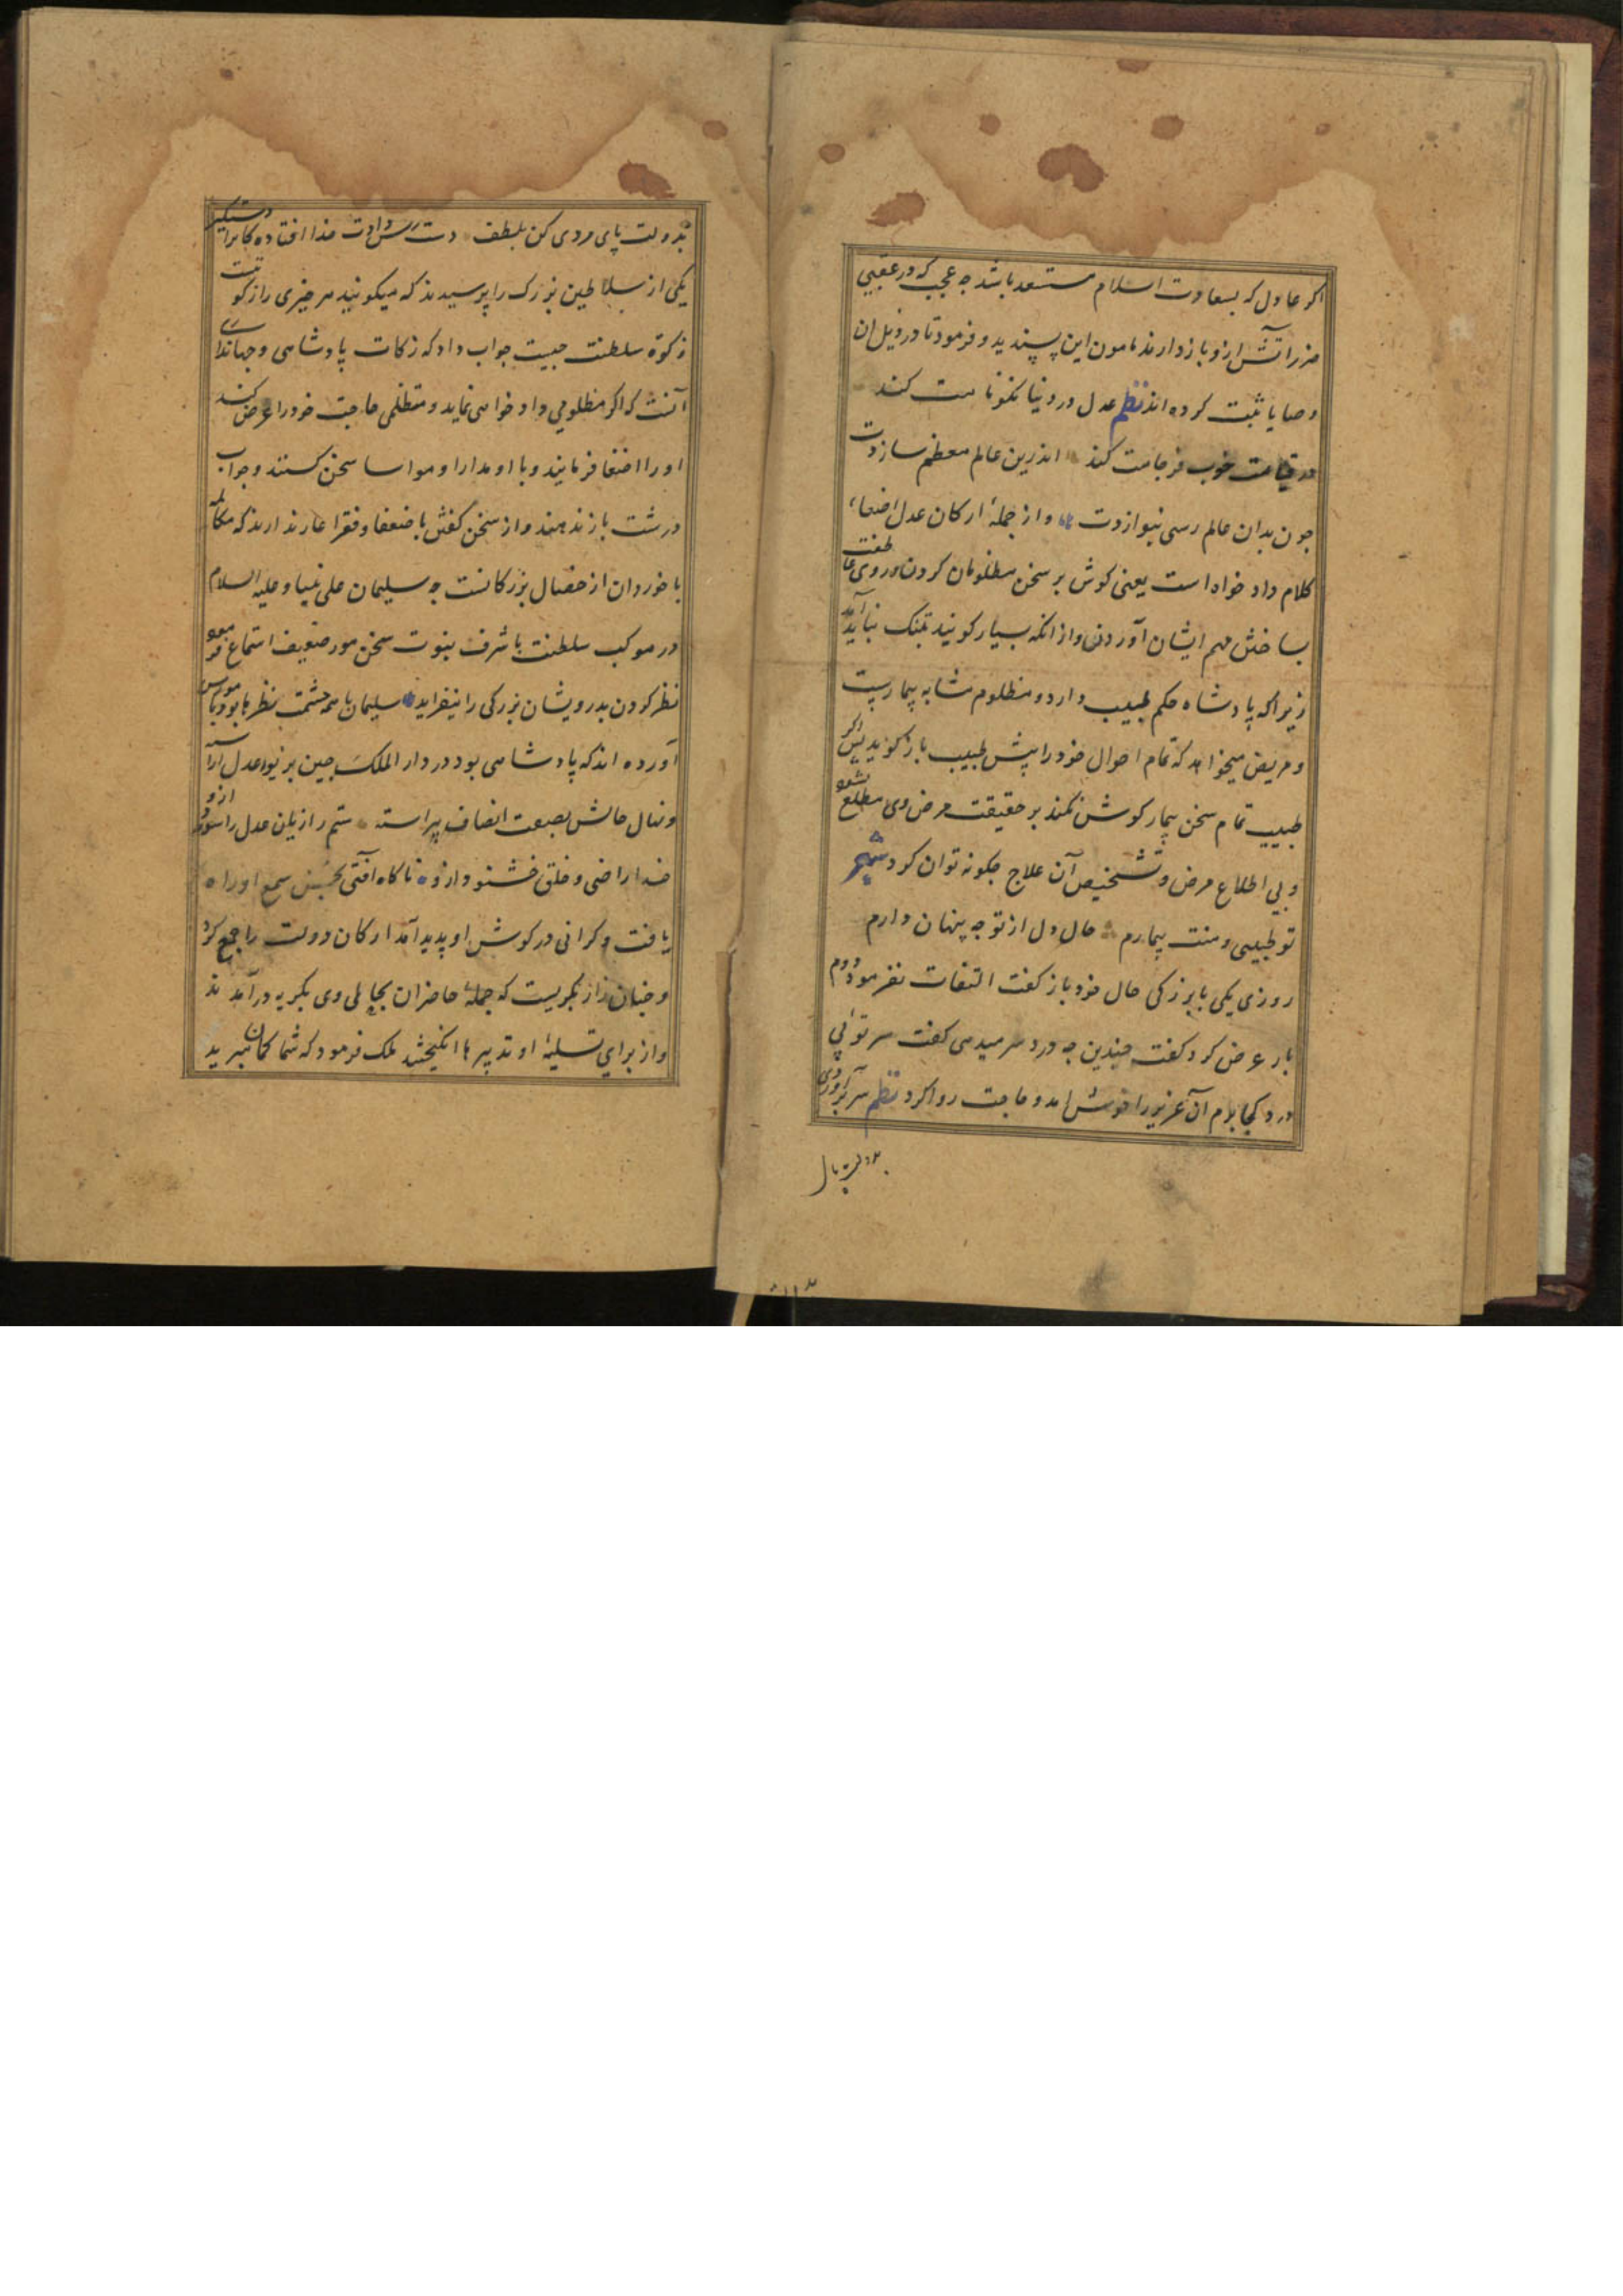 اکر عادل که بسعادت اسلام مستسعد باشد چه عجب که در عقبی
ضرر آتش ازو بازدارند مامون این پسندید و فرمود تا در ذیل ان
وصایا ثبت کرده اند نظم عدل در دنیا نکونامت کند
در قیامت خوب فرجامت کند اندرین عالم معظم سازدت
چون بدان عالم رسی بنوازدت و از جملهٔ ارکان عدل اصغاء
کلام داد خواه است یعنی کوش بر سخن مظلومان کردن و روی عاطفت
بساختن مهم ایشان آوردن و از انکه بسیار کویند بتنک نباید آمد
زیراکه پادشاه حکم طبیب دارد و مظلوم مشابه بیماریست
و مریض میخواهد که تمام احوال خود را پیش طبیب باز کوید پس اکر
طبیب تمام سخن بیمار کوش نکند بر حقیقت مرض وی مطلع نشود
و بی اطلاع مرض و تشخیص آن علاج چکونه توان کرد شعر
تو طبیبی و منت بیمارم حال دل از تو چه پنهان دارم
روزی یکی با بزرکی حال خود باز کفت التفات نفرمود دوم
بار عرض کرد کفت چندین چه درد سر میدهی کفت سر توئی
درد کجا برم آن عزیز را خوش امد و حاجت روا کرد نظم سر بر اوردی
بدولت پای
بدولت پای مردی کن بلطف دست رس دادت خدا افتاده کانرا دستکیر
یکی از سلاطین بزرک را پرسیدند که میکویند هر چیزی را زکوتیست
زکوة سلطنت چیست جواب داد که زکات پادشاهی و جهانداری
آنست که اکر مظلومی داد خواهی نماید و متظلمی حاجت خود را عرض کند
او را اصغا فرمایند و با او مدارا و مواسا سخن کنند و جواب
درشت باز ندهند و از سخن کفتن با ضعفا و فقرا عار ندارند که مکالمه
با خوردان از خصال بزرکانست چه سلیمان علی نبینا و علیه السلام
در موکب سلطنت با شرف نبوت سخن مور ضعیف استماع فرمود
نظر کردن بدرویشان بزرکی را بیفزاید سلیمان با همه حشمت نظرها بود با مورش
آورده اند که پادشاهی بود در دار الملک چین بزیور عدل آراسته
و نهال حالش بصنعت انصاف پیراسته ستم را زیان عدل را سود ازو
خدا راضی و خلق خشنود ازو ناکاه آفتی بحس سمع او راه
یافت و کرانی در کوش او پدید آمد ارکان دولت را جمع کرد
و چنان زار بکریست که جملهٔ حاضران بحالی وی بکریه درآمدند
و از برای تسلیهٔ او تدبیرها انکیختند ملک فرمود که شما کمان مبرید